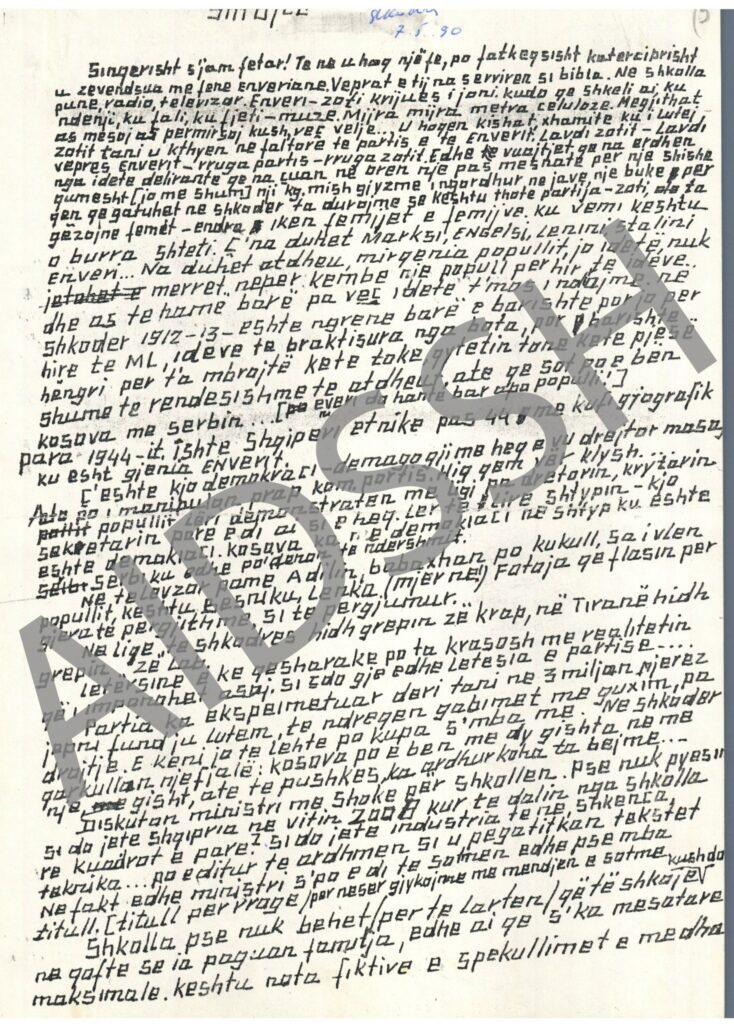 Shkodër
7.5.90
Singerisht s'jam fetar! Te ne u hoq një fe, po fatkeqsisht katerciprisht
u zevendsua me fene enveriane. Veprat e tij na serviren si bibla. Ne shkolla
pune, radio, televizor. Enveri-zoti krijues i joni. kudo qe shkeli ai, ku
ndenji, ku fali, ku fjeti-muze. Mijra mijra metra celuloze. Megjithat
as mesoj as permirsoj kush, veç velje... u hoqen kishat, xhamite ku i lutej
zotit tani u kthyen ne faltore te partis e te Enverit. Lavdi zotit - Lavdi
vepres Enverit-rruga partis-rruga zotit. Edhe te vuajtjet qe na erdhen
nga idete delirante qe na çuan ne oren nje pas mesnate per nje shishe
qumesht [jo me shum] nji kg. mish gjyzme ingordhur ne jave, nje buke, per
qen qe gatuhet ne shkoder ta durojme se keshtu thote partija-zoti, ato ta
gëzojne femët-endra iken femijet e femijve. ku vemi keshtu
o burra shteti. Ç'na duhet Marksi, Engelsi, Lenini, Stalini
Enveri... Na duhet atdheu, mirqenia popullit jo idete, nuk
merret neper kembe nje popull per hir te ideve.
dhe as te hamë barë pa veç idete t'mos i ndajme ne
Shkoder 1912-13-eshte ngrene barë e barishte porja per
hire te ML, ideve te braktisura nga bota, por barishte
hëngri per ta mbrojtë kete toke qytetin tane kete pjesë
shume te rendesishme te atdheut, ate qe sot po e ben
kosova me serbin... [po everi da hante bar abo populli!]
para 1944-it. Ishte Shqiperi etnike pas 44 me kufi gjiografik
ku esht gjenia ENVERIT.
Ç'eshte kjo demokraci demagogji me heq e vu drejtor masay
Ato po i manipulon prap kom partis. nliq qem vër klysh...
popullit leri demonstraten me ligj pa dretorin, kryetarin
sekretarin pore edi ai si e heq. Ler te lire Shtypin-kjo
eshte demokiaci. Kosova ka ne demokiaci në shtyp ku është
Serbi ku edhe po denon te ndershmit.
Në televzor pame Adilin, babaxhan po kukull, sa i vlen
popullit, keshtu e esniku, Lenka. (mjer ne!) Fotoja qe flasin per
gjera te pergjithme, si te pergjumur.
Ne liqe te shkodres hidh grepin zë krap, në Tiranë hidh
grepin zë lab.
Letërsinë e ke qesharake po ta krasosh me realitetin
që i imponohet asaj, si çdo gje edhe letësia e partise....
Partia ka ekspeimetuar deri tani ne 3 miljon njerez
jepni fund ju lutem, te ndreqen gabimet me guxim, pa
drojtje. E keni jo te lehte po kupa s'mba me. Ne Shkoder
qarkullan nje fjalë: kosova po e ben me dy gishta ne me
nje gisht, ate te pushkes, ka ardhur koha ta bejme...
Diskutan ministri me shoke për shkollen. Pse nuk pyesin
si do jete Shqipria ne vitin 2000 kur te dalin nga shkolla
re kuadrot e pare? si do jete industria te ne, shkenca,
teknika... po editur te ardhmen si u pegatitkan tekstet
Ne fakt edhe ministri s'po e di te sotmen edhe pse mba
titull. [titull per vrage/per neser gjykojme me mendjen e sotme kush do
Shkolla pse nuk behet/per te larten/që të shkojë
ne qofte se ia paguan familja, edhe ai qe s'ka mesatare
maksimale. keshtu nota fiktive e spekullimet e medha
AIDSSH